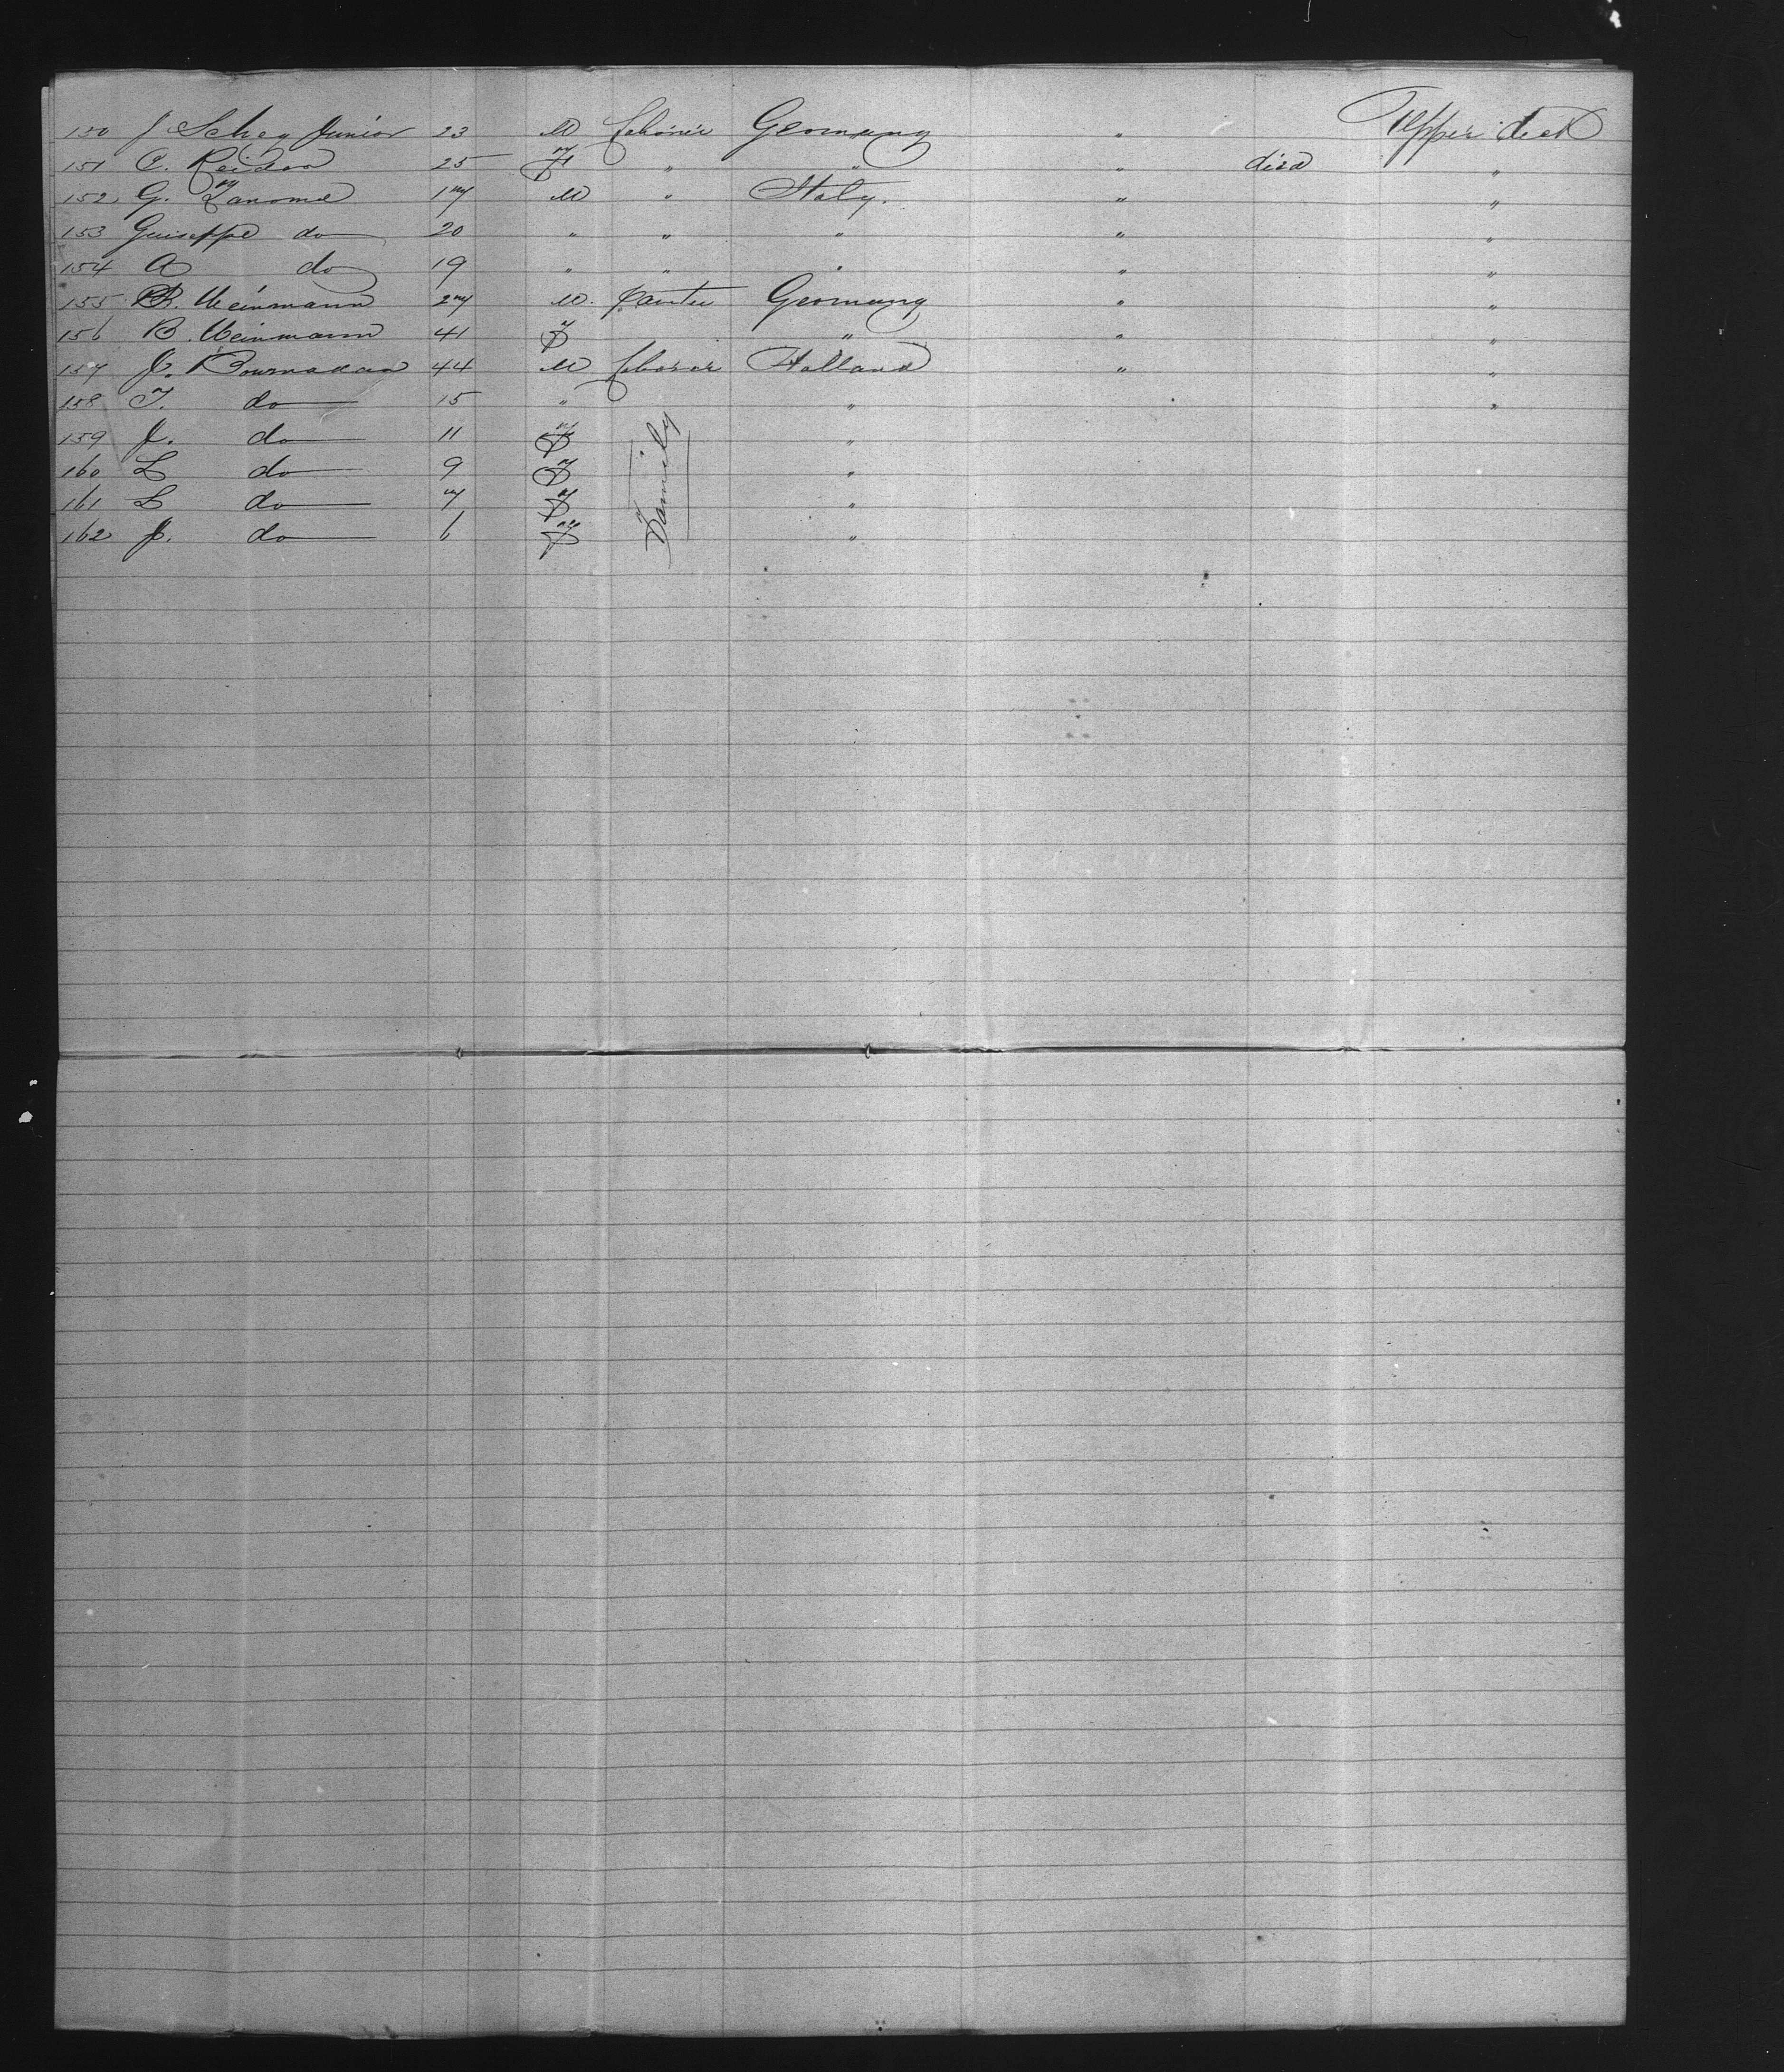 150 J Scheg Junior 23 M Laborer Germany " Upper deck
151 C. 25 F " " " died "
152 G. Zanoma 17 M " Italy. " "
153 Guiseppe do 20 " " " " "
154 A do 19 " " " " "
155 R. Weinmann 27 M. Germany " "
156 B. Weinmann 41 F " " "
157 J. 44 M Laborer Holland " "
158 T. do 15 " " "
159 J. do 11 F "
160 L do 9 F "
161 L do 7 F "
162 J. do 6 F "
Family